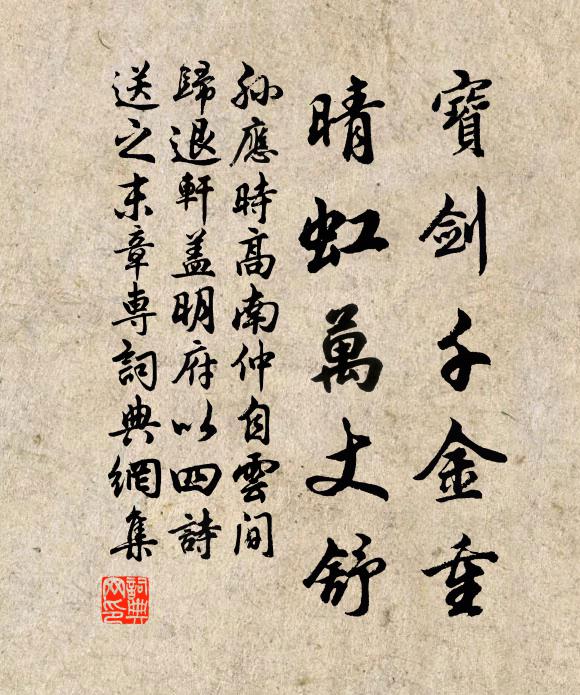 寶劍千金重
晴虹萬丈舒
孫應時高南仲自雲间
歸退軒蓋明府以四詩
送之末章専詞典網集
詞典网印